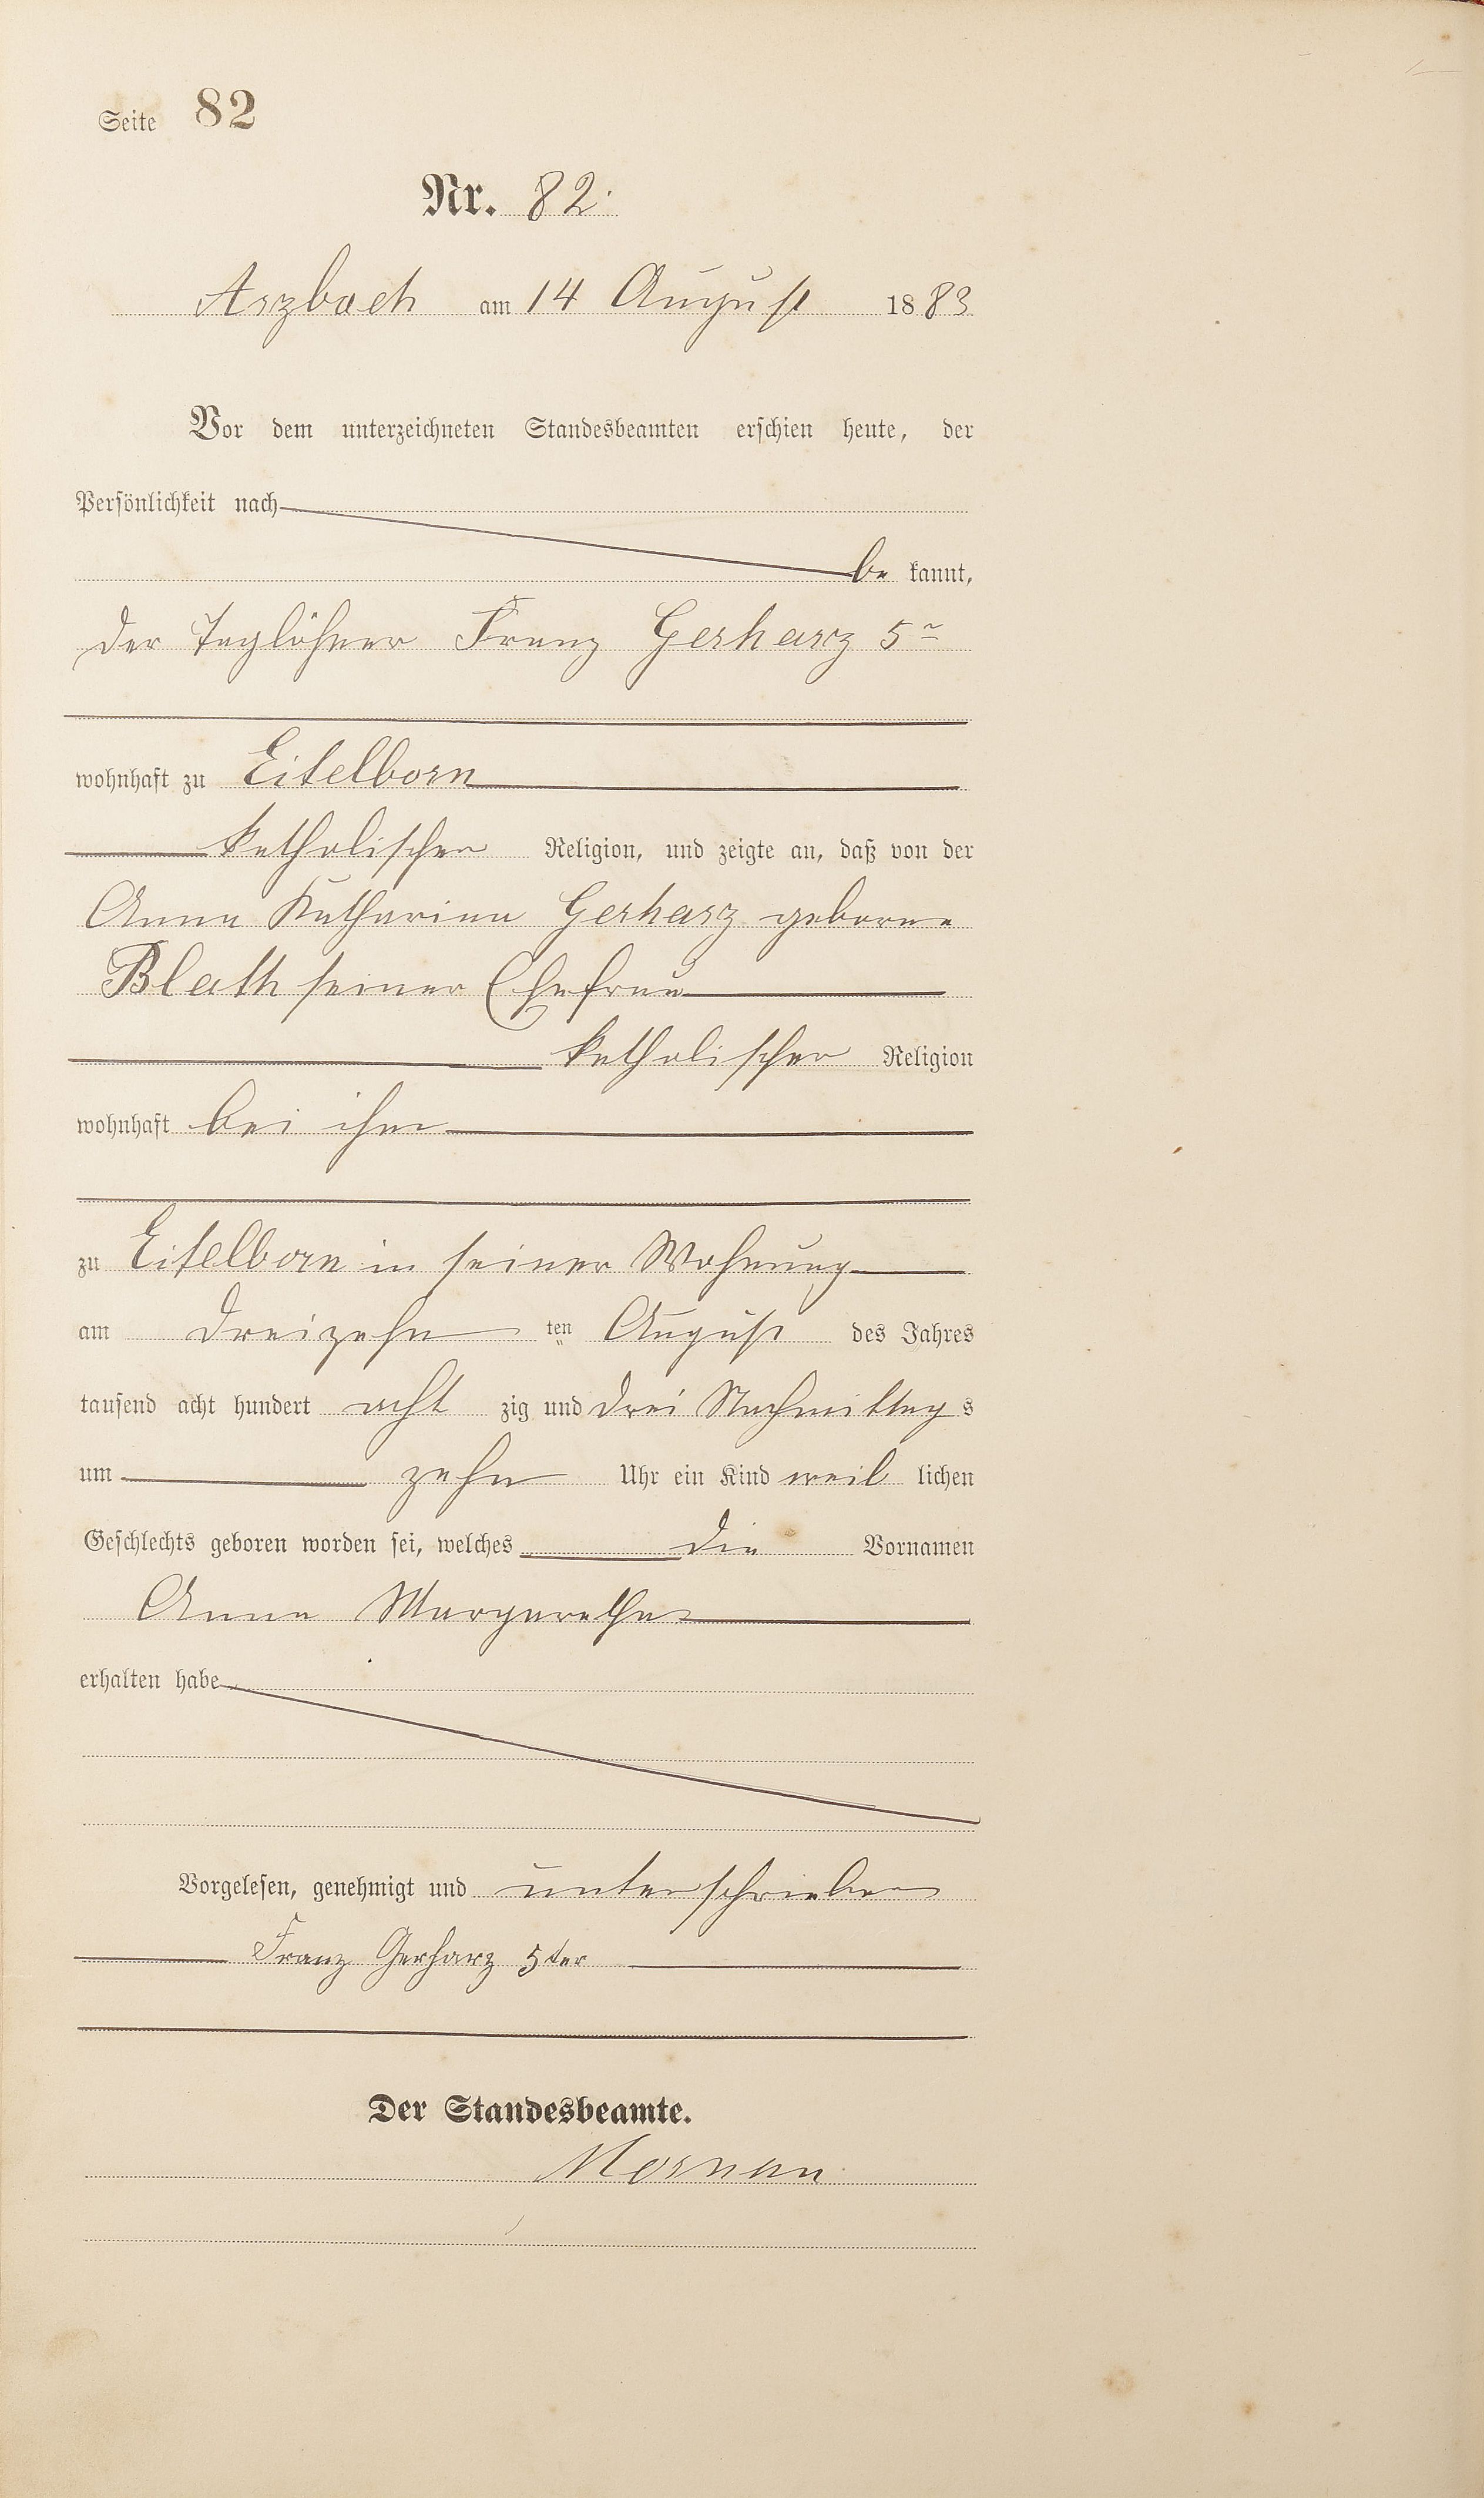 Seite 82
Nr. 82.
Arzbach am 14 August 1883
Vor dem unterzeichneten Standesbeamten erschien heute, der
Persönlichkeit nach
be kannt,
der Taglöhner Franz Gerharz 5r
wohnhaft zu Eitelborn
katholischer Religion, und zeigte an, daß von der
Anna Katharina Gerharz geborne
Blath seiner Ehefrau
katholischer Religion
wohnhaft bei ihm
zu Eitelborn in seiner Wohnung
am dreizehn ten August des Jahres
tausend acht hundert acht zig und drei Nachmittag s
um zehn Uhr ein Kind weib lichen
Geschlechts geboren worden sei, welches die Vornamen
Anna Margaretha
erhalten habe
Vorgelesen, genehmigt und unterschrieben
Franz Gerharz 5ter
Der Standesbeamte.